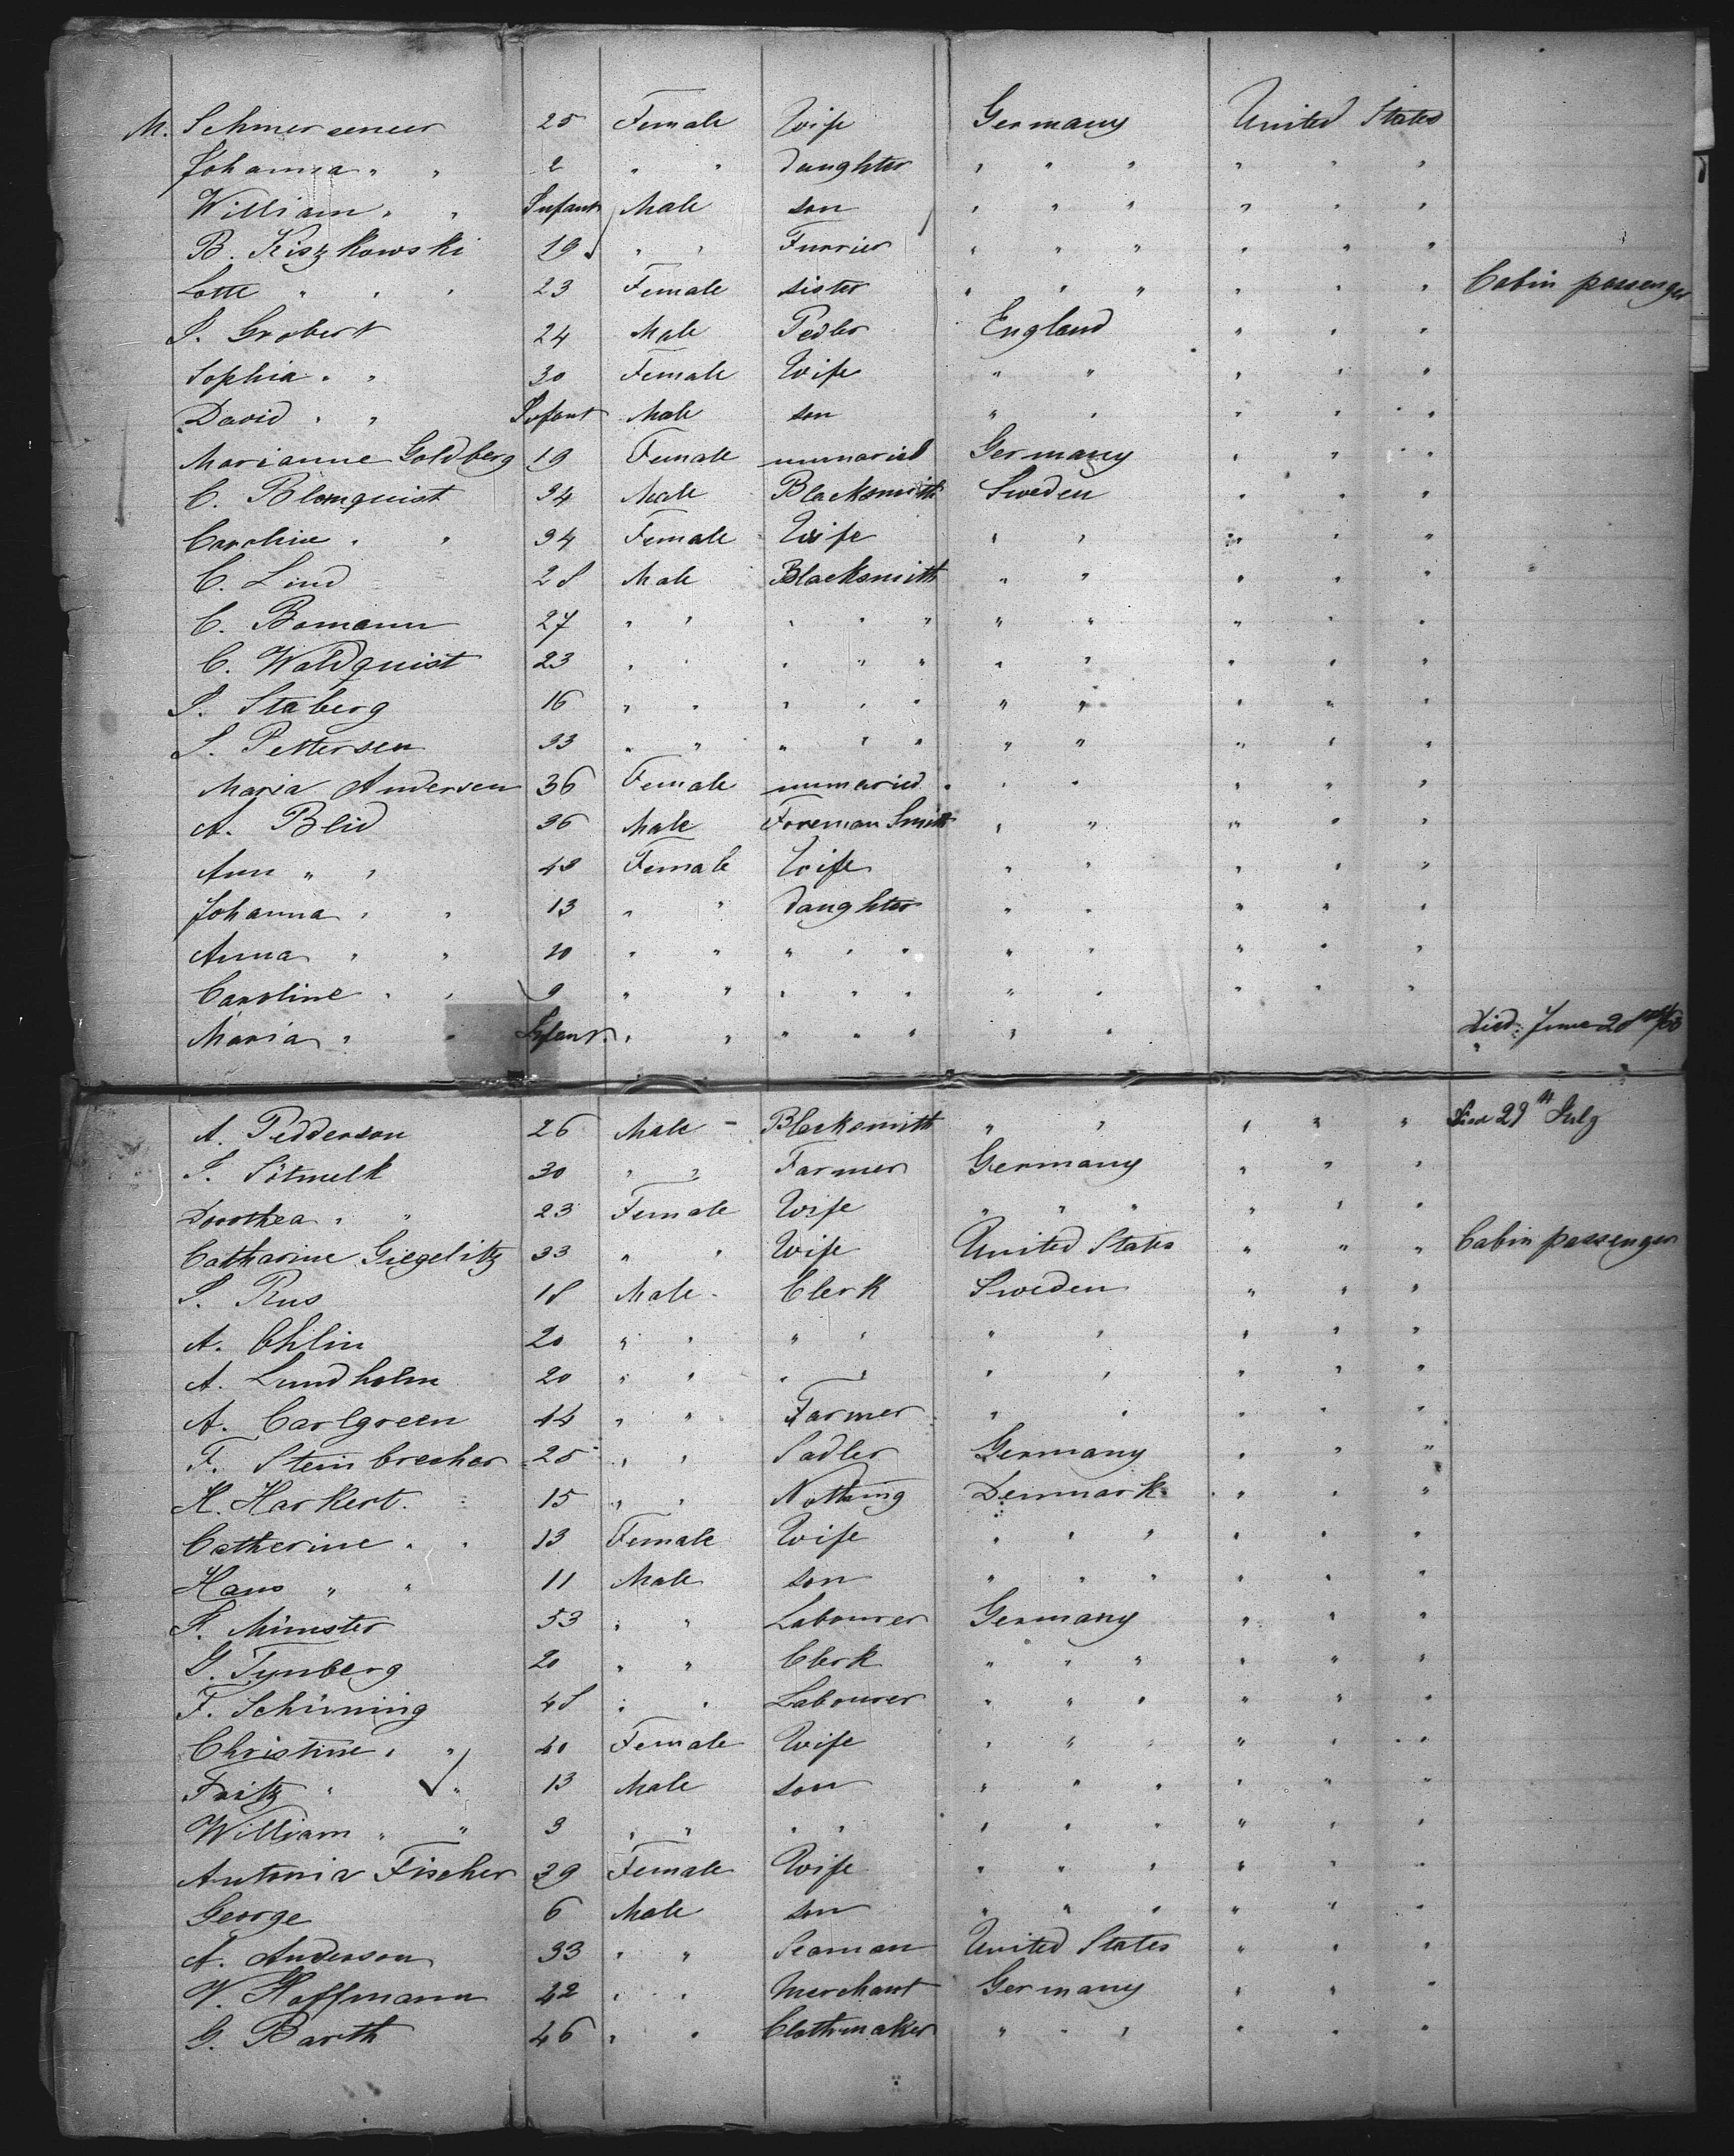 M. Schmerseneer 25 Female Wife Germany United States
Johanna " " 2 " " daughter " " " " " "
William " " Infant Male son " " " " " "
B. Kiszkowski 19 " " Furrier " " " " " "
Lotte " " " 23 Female sister " " " " " " Cabin passenger
S. Grobert 24 Male Pedler England " " "
Sophia " " 30 Female Wife " " " " "
David " " Infant Male son " " " " "
Marianne Goldberg 19 Female unmaried Germany " " "
C. Blomquist 34 Male Blacksmith Sweden " " "
Caroline " " 34 Female Wife " " " " "
C. Lind 28 Male Blacksmith " " " " "
C. Bomann 27 " " " " " " " " " "
C. Waldquist 23 " " " " " " " " " "
S. Staberg 16 " " " " " " " " " "
S. Pettersen 33 " " " " " " " " " "
Maria Andersen 36 Female unmaried " " " " "
A. Blid 36 Male Foreman Smith " " " " "
Ann " " 43 Female Wife " " " " "
Johanna " " 13 " " daughter " " " " "
Anna " " 10 " " " " " " " " " "
Caroline " " 9 " " " " " " " " " "
Maria " " Infant " " " " " " " Died June 20
A. Pedderson 26 Male - Blacksmith " " " " " Died 29th July
S. Sötmelk 30 " " Farmer Germany " " "
Dorothea " " 23 Female Wife " " " " " "
Catharine Giegelitz 33 " " Wife United States " " " Cabin passenger
S. Rus 18 Male - Clerk Sweden " " "
A. Ohlin 20 " " " " " " " " "
A. Lundholm 20 " " " " " " " " "
A. Carlgreen 44 " " Farmer " " " " "
F. Steinbrecher 25 " " Sadler Germany " " "
H. Harkert. 15 " " Nothing Denmark " " "
Catherine " " 13 Female Wife " " " " " "
Hans " " 11 Male son " " " " " "
F. Münster 53 " " Labourer Germany " " "
G. Tynberg 20 " " Clerk " " " " " "
F. Schünning 48 " " Labourer " " " " " "
Christine " " 40 Female Wife " " " " " "
Fritz " " 13 Male son " " " " " "
William " " 9 " " " " " " " " " "
Antonia Fischer 39 Female Wife " " " " " "
George 6 Male son " " " " " "
A. Anderson 33 " " Seaman United States " " "
W. Hoffmann 42 " " Merchant Germany " " "
G. Barth 46 " " Clothmaker " " " " " "